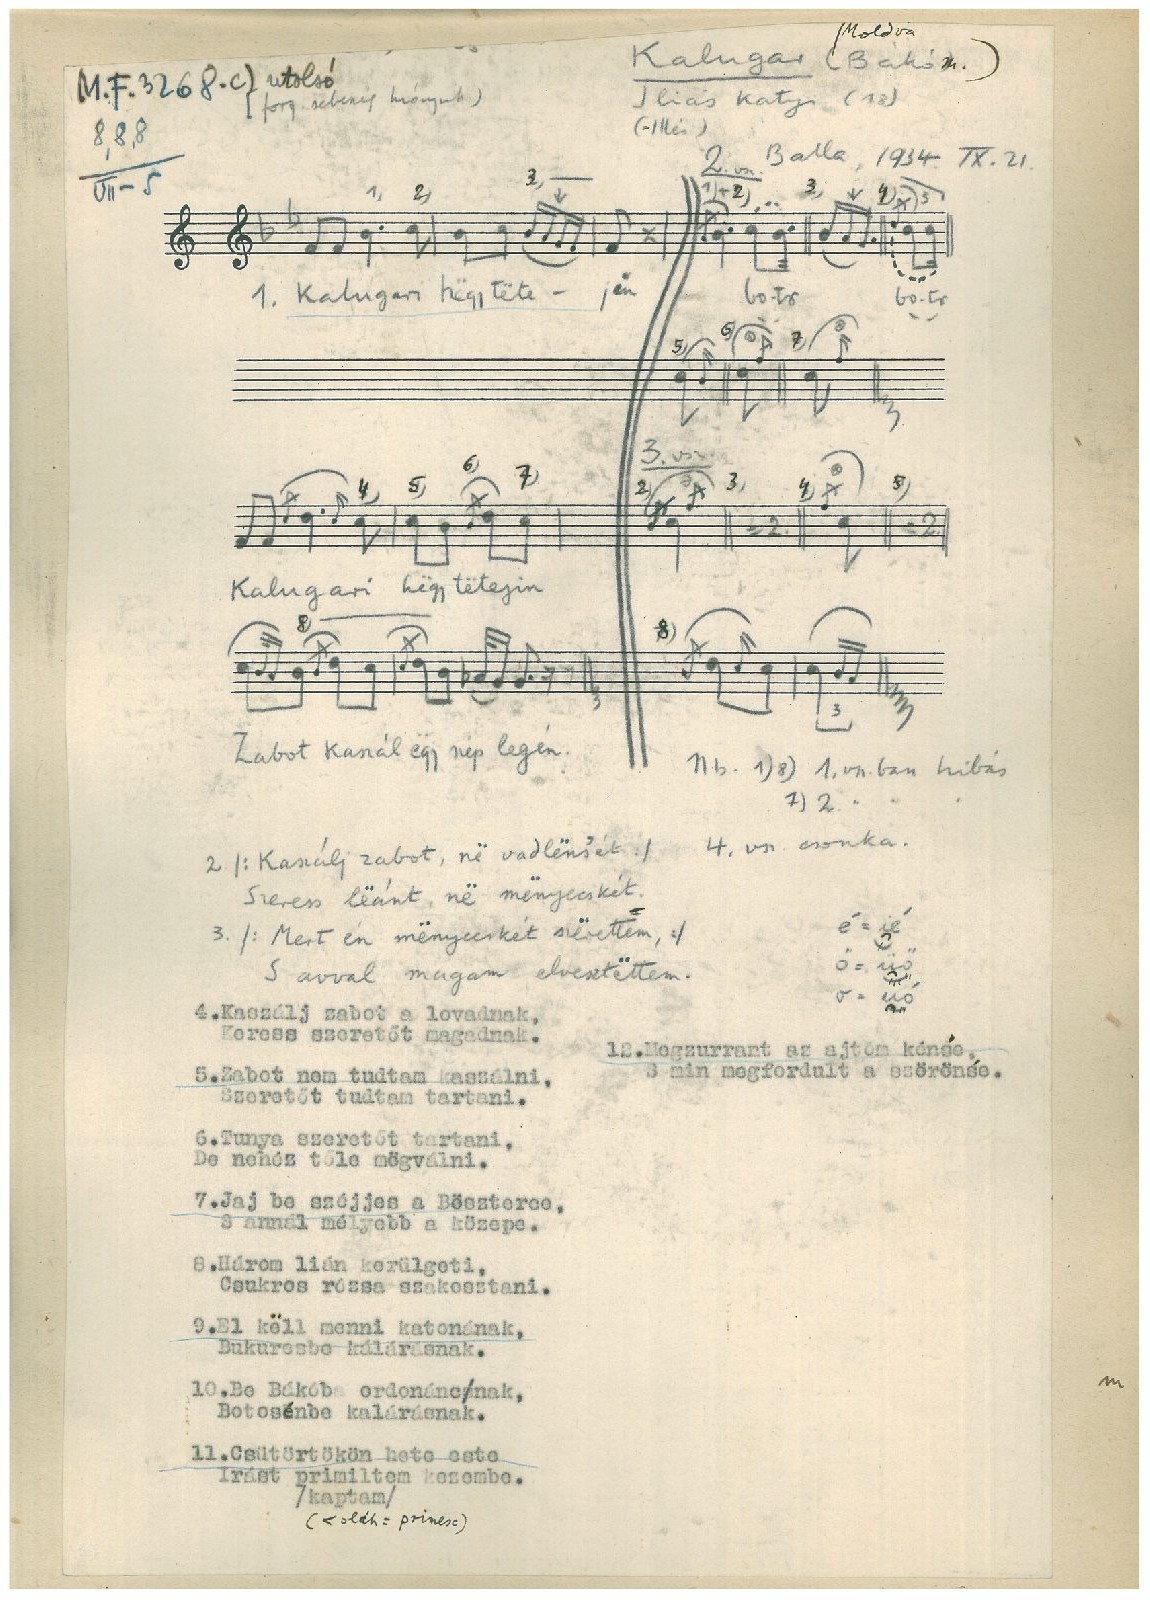 (Moldva
Kalugar (Bákó m.)
M.F.3268.c) utolsó
Iliás Katyi (18)
(=Illés)
8,8,8
VII-5
Balla, 1934 IX. 21.
2. vsz.
1) 2) 3) 1)+2) 3) 4) 3
1. Kalugari hëgy tëte - jén
bo-tr bo-tr
5) 6) 7)
3. vsz.
4) 5) 6) 7) 2) 3) 4) 5)
=2. =2.
Kalugari hëgy tëtejin
8) 8)
3
Zabot kaszál ëgy nép legén.
Nb. 1) 8) 1. vsz. ban hibás
7) 2. " "
4. vsz. csonka.
2. /: Kaszálj zabot, në vadlëncsét :/
Szeress lëánt, në mënyecskét.
3. /: Mert én mënyecskét szërettem, :/
S avval magam elvesztëttem.
é = ié
ő = üő
ó = uó
4.Kaszálj zabot a lovadnak,
Keress szeretőt magadnak.
5.Zabot nem tudtam kaszálni,
Szeretőt tudtam tartani.
6.Tunya szeretőt tartani,
De nehéz tőle mögválni.
7.Jaj be széjjes a Böszterce,
S annál mélyebb a közepe.
8.Három lián kerülgeti,
Csukros rózsa szakosztani.
9.El këll menni katonának,
Bukuresbe kálárásnak.
10.Be Bákóba ordonáncsnak,
Botosénbe kalárásnak.
11.Csütörtökön hete este
Irást primiltem kezembe.
/kaptam/
(< oláh = primesc)
12.Megzurrant az ajtóm kéncse,
S min megfordult a szöröncse.
m